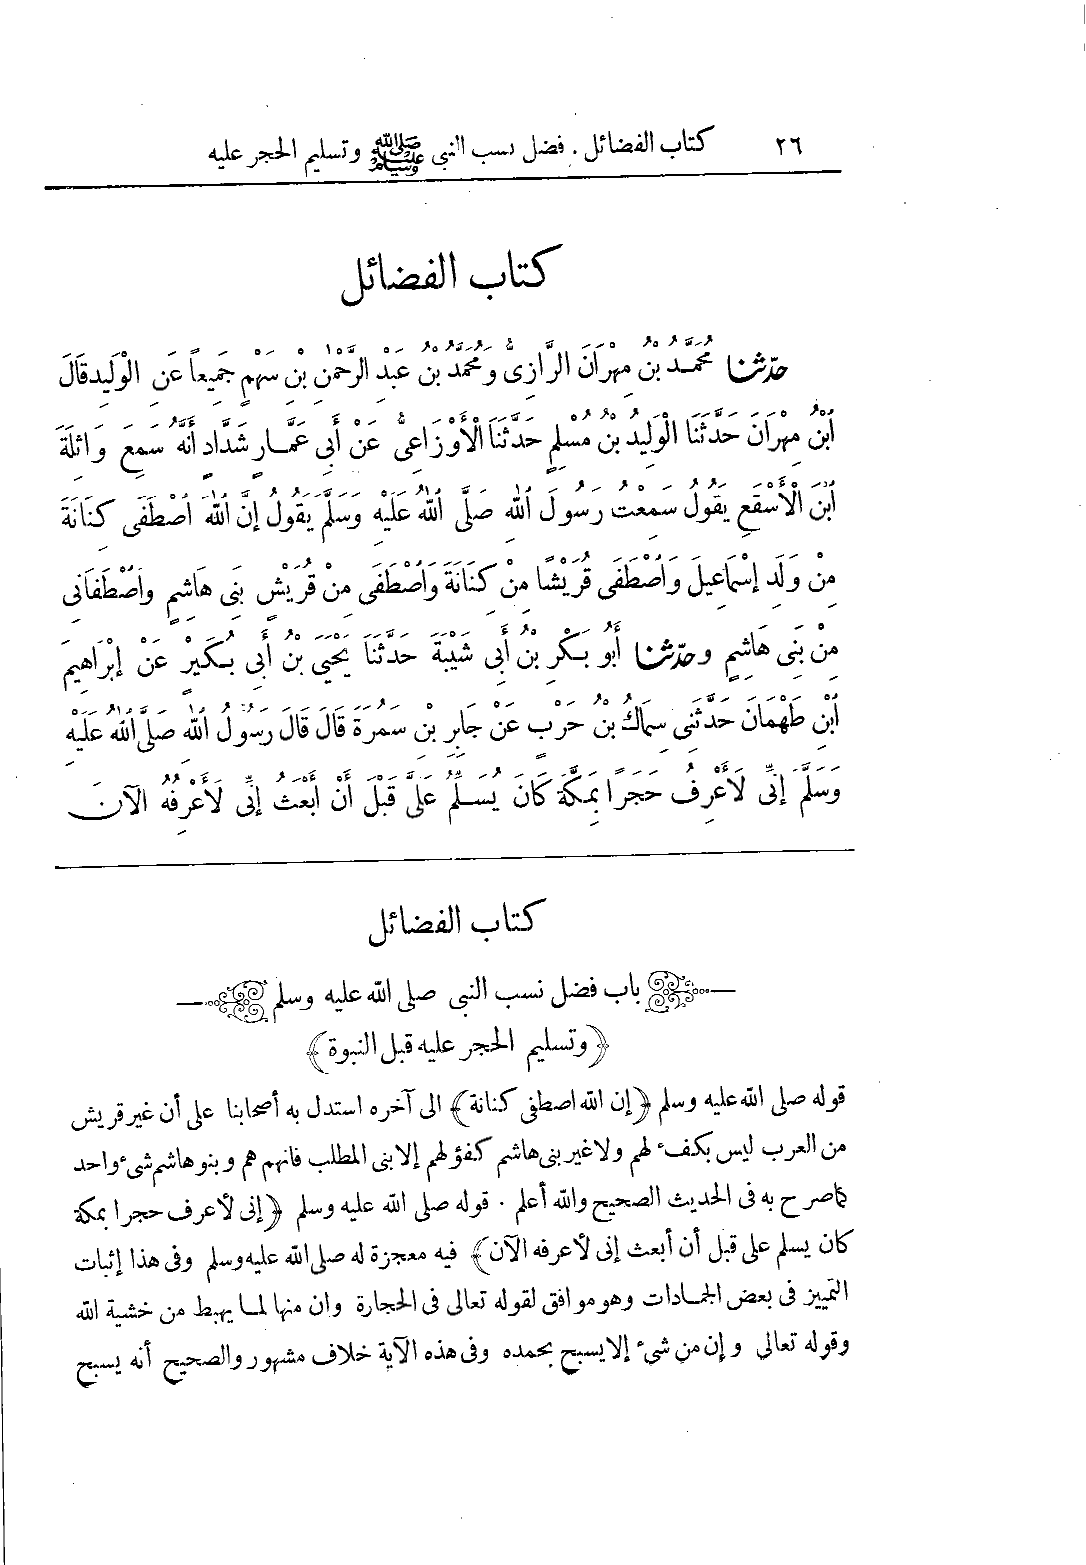 ٢٦ كتاب الفضائل . فضل نسب النبى ﷺ وتسليم الحجر عليه
كتاب الفضائل
حدّثنا مُحَمَّدُ بْنُ مِهْرَانَ الرَّازِىُّ وَمُحَمَّدُ بْنُ عَبْدِ الرَّحْمٰنِ بْنِ سَهْمٍ جَمِيعاً عَنِ الْوَلِيدِ قَالَ
ابْنُ مِهْرَانَ حَدَّثَنَا الْوَلِيدُ بْنُ مُسْلِمٍ حَدَّثَنَا الْأَوْزَاعِىُّ عَنْ أَبِى عَمَّارٍ شَدَّادٍ أَنَّهُ سَمِعَ وَاثِلَةَ
ابْنَ الْأَسْقَعِ يَقُولُ سَمِعْتُ رَسُولَ اللهِ صَلَّى اللهُ عَلَيْهِ وَسَلَّمَ يَقُولُ إِنَّ اللهَ اصْطَفَى كِنَانَةَ
مِنْ وَلَدِ إِسْمَاعِيلَ وَاصْطَفَى قُرَيْشًا مِنْ كِنَانَةَ وَاصْطَفَى مِنْ قُرَيْشٍ بَنِى هَاشِمٍ وَاصْطَفَانِى
مِنْ بَنِى هَاشِمٍ وحدّثنا أَبُو بَكْرِ بْنُ أَبِى شَيْبَةَ حَدَّثَنَا يَحْيَى بْنُ أَبِى بُكَيْرٍ عَنْ إِبْرَاهِيمَ
ابْنِ طَهْمَانَ حَدَّثَنِى سِمَاكُ بْنُ حَرْبٍ عَنْ جَابِرِ بْنِ سَمُرَةَ قَالَ قَالَ رَسُولُ اللهِ صَلَّى اللهُ عَلَيْهِ
وَسَلَّمَ إِنِّى لَأَعْرِفُ حَجَرًا بِمَكَّةَ كَانَ يُسَلِّمُ عَلَىَّ قَبْلَ أَنْ أُبْعَثَ إِنِّى لَأَعْرِفُهُ الْآنَ
كتاب الفضائل
باب فضل نسب النبى صلى الله عليه وسلم
﴿وتسليم الحجر عليه قبل النبوة﴾
قوله صلى الله عليه وسلم ﴿إن الله اصطفى كنانة﴾ الى آخره استدل به أصحابنا على أن غير قريش
من العرب ليس بكفء لهم ولا غير بنى هاشم كفؤ لهم إلا بنى المطلب فانهم هم وبنو هاشم شىء واحد
كما صرح به فى الحديث الصحيح والله أعلم . قوله صلى الله عليه وسلم ﴿إنى لأعرف حجرا بمكة
كان يسلم على قبل أن أبعث إنى لأعرفه الآن﴾ فيه معجزة له صلى الله عليه وسلم وفى هذا إثبات
التمييز فى بعض الجمادات وهو موافق لقوله تعالى فى الحجارة وان منها لما يهبط من خشية الله
وقوله تعالى وإن من شىء إلا يسبح بحمده وفى هذه الآية خلاف مشهور والصحيح أنه يسبح